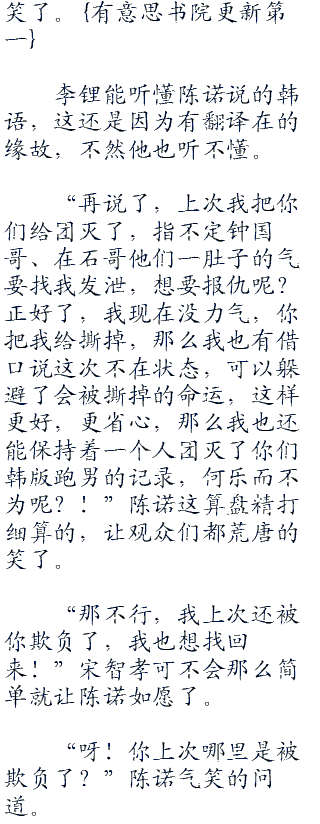 笑了。{有意思书院更新第
一}
李锂能听懂陈诺说的韩
语，这还是因为有翻译在的
缘故，不然他也听不懂。
“再说了，上次我把你
们给团灭了，指不定钟国
哥、在石哥他们一肚子的气
要找我发泄，想要报仇呢？
正好了，我现在没力气，你
把我给撕掉，那么我也有借
口说这次不在状态，可以躲
避了会被撕掉的命运，这样
更好，更省心，那么我也还
能保持着一个人团灭了你们
韩版跑男的记录，何乐而不
为呢？！”陈诺这算盘精打
细算的，让观众们都荒唐的
笑了。
“那不行，我上次还被
你欺负了，我也想找回
来！”宋智孝可不会那么简
单就让陈诺如愿了。
“呀！你上次哪里是被
欺负了？”陈诺气笑的问
道。